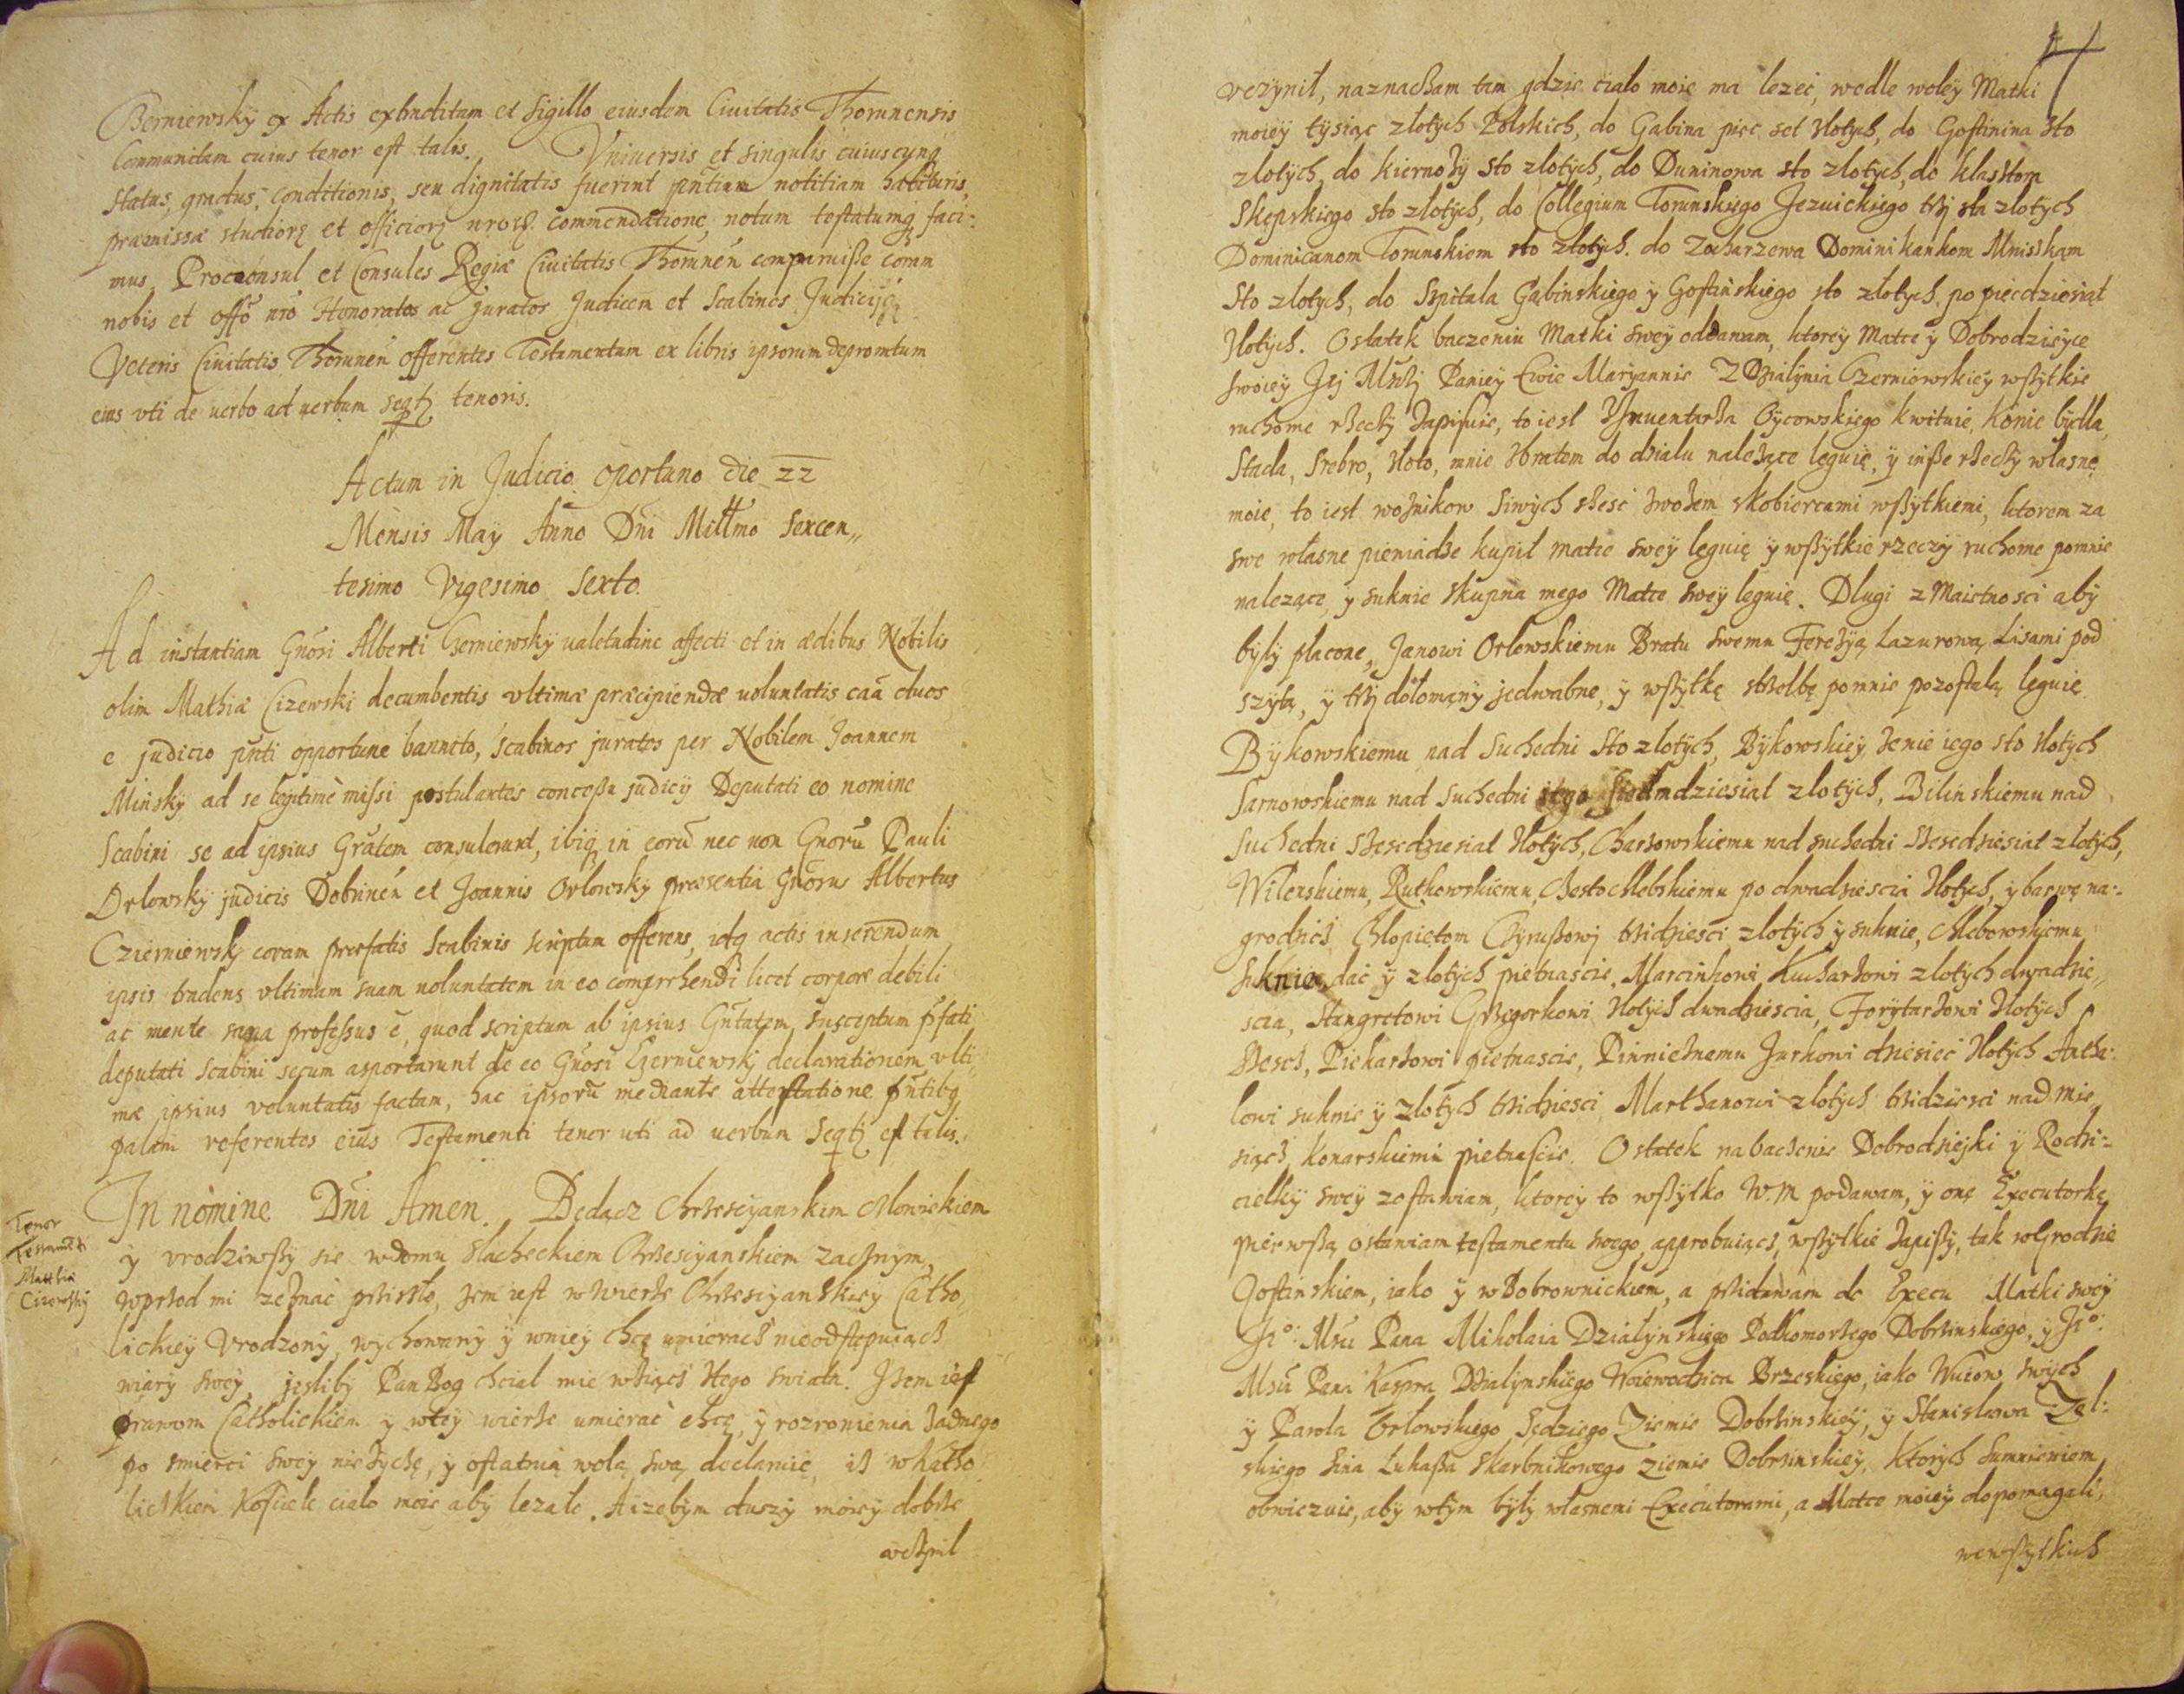 Berniewsky ex Actis extraditam et Sigillo eiusdem Ciuitatis Thorunensis
Communitam cuius tenor est talis. Vniuersis et singulis cuiuscunq
status, gradus, conditionis, seu dignitatis fuerint pntium notitiam habituris,
praemissa studiorz et officiorz nrorz commendatione, notum testatumq faci:
mus Proconsul et Consules Regiae Ciuitatis Thorunen comparuisse coram
nobis et offo nro Honoratos ac Juratos Judicem et Scabinos Judicij
Veteris Ciuitatis Thorunen offerentes Testamentum ex libris ipsorum depromtum
eius vti de uerbo ad uerbum seqtj tenoris.
Actum in Judicio oportuno die 22
Mensis May Anno Dni Millmo Sexcen„
tesimo Vigesimo Sexto.
Ad instantiam Gnosi Alberti Czerniewsky ualetudine affecti et in aedibus Nobilis
olim Mathiae Cizewski decumbentis vltimae praecipiendae uoluntatis caa duos
e judicio pnti opportune bannito, scabinos juratos per Nobilem Joannem
Minsky ad se legitime missi postulantes concessu judicij Deputati eo nomine
Scabini se ad ipsius Gratem consulerunt, ibiq in eoru nec non Gnoru Pauli
Orlowsky judicis Dobrinen et Joannis Orlowsky praesentia Gnorus Albertus
Czierniewsky coram praefatis Scabinis scriptum offerens, idq actis inserendum
ipsis tradens vltimam suam uoluntatem in eo comprehendi licet corpore debili
ac mente sana professus e, quod scriptum ab ipsius Gntatem susceptum pfati
deputati Scabini secum asportarunt de eo Gnosi Czerniewsky declarationem vlti„
mae ipsius voluntatis factam, hac ipsoru mediante attestatione pntibq
palam referentes eius Testamenti tenor uti ad uerbum Seqtj est talis.
Tenor
Testamenti
Matthia
Cizowsky
In nomine Dni Amen. Będącz chrzesciyanskim człowiekiem
y vrodziwszy sie wdomu Slacheckiem Chrzesciyanskiem zacznym,
wprzod mi zeznac przisło, zem iest w wierze Chrzesciyanskiey Catho„
lickiey Vrodzony, wychowany y wniey chcę umieracz nieodstępuiącz
wiary swey, jesliby Pan Bog chcial mie wziącz stego swiata. Jzem iest
prawom Catholickiem y wtey wierze umierac chcę, y rozronienia zadnego
po smierci swey nie zyczę, y ostatnią wolą swą declaruię, isz w katho
lickiem Kosciele cialo moie aby lezało. A izebym duszy moiey dobrze
vczynil
vczynil, naznaczam tam gdzie cialo moie ma lezec, wedle woley Matki
moiey tysiąc zlotych Polskich, do Gabina piec set zlotych, do Gostinina sto
zlotych, do kiernozy sto zlotych, do Duninowa sto zlotych, do klasztora
Skępskiego sto zlotych, do Collegium Torunskiego Jezuickiego trzy sta zlotych
Dominicanom Torunskiem sto zlotych. do Zocharzewa Dominikankom Mniszkam
Sto zlotych, do Szpitala Gąbinskiego y Gostinskiego sto zlotych, po piecdziesiat
zlotych. Ostatek baczeniu Matki swey oddawam, ktorey Matce y Dobrodzieyce
swoiey Jej Mscj Paniey Ewie Maryannie Z Dzialynia Czerniewskiey wszytkie
ruchome rzeczy zapisuie, to iest Jnuentarza Oycowskiego kwituie, konie bydla,
Stada, Srebro, zloto, mnie zbratem do dzialu nalezące leguię, y insze rzeczy własne
moie, to iest woznikow siwych szesc zwozem skobiercami wszytkiemi, ktorem za
swe własne pieniadze kupil matce swey leguię y wszytkie rzeczy ruchome pomnie
nalezące y suknie skupna mego Matce swey leguię. Dlugi z Maietnosci aby
były placone, Janowi Orlowskiemu Bratu swemu Ferezyą Lazurową Lisami pod
szytą, y trzy dołomany jedwabne, y wszytkę strzelbę pomnie pozostalą leguię
Bykowskiemu nad Suchedni Sto zlotych, Bykowskiey zenie iego sto zlotych
Sarnowskiemu nad Suchedni siedmdziesiąt zlotych, Bilinskiemu nad
Suchedni szescdziesiat zlotych, Charzowskiemu nad suchedni szescdziesiat zlotych,
Wilenskiemu, Rutkowskiemu, Bestochlebskiemu po dwadziescia zlotych, y barwę na:
grodzicz. Chlopiętom Cyruszowj trzidziesci zlotych y suknie, Chlebowskiemu
Suknie dac y zlotych pietnascie. Marcinkowi Kucharzowi zlotych dwadzie„
scia, Stangretowi Grzegorkowi zlotych dwadziescia, Forytarzowi zlotych
szesc, Piekarzowi pietnascie, Piwniczemu Jurkowi dziesiec zlotych Anthe:
lowi suknie y zlotych trzidziesci Marthanowi zlotych trzidziesci nad Mie„
siącz Konarskiemu pietnascie. Ostatek na baczenie Dobrodziejki y Rodzi:
cielky swey zostawiam, ktorey to wszytko W.M. podawam, y onę Executorkę
pierwszą ostawiam testamentu swego, approbuiącz wszytkie zapiszy, tak w Grodzie
Gostinskiem, iako y w Bobrownickiem, a przidawam do Execu Matki swey
Jo: Msci Pana Mikolaia Dzialynskiego Podkomorzego Dobrzinskiego, y Jo:
Msci Pana Kaspra Dzialynskiego Woiewodzica Brzeskiego, iako Wuiow swych
y Pawla Orlowskiego Sędziego Ziemie Dobrzinskiey, y Stanislawa Zal:
skiego sina Lukasza Skarbnikowego ziemie Dobrzinskiey, Ktorych sumnieniem
obwiezuie, aby wtym byly wlasnemi Executorami, a Matce moiey dopomagali,
wewszytkich